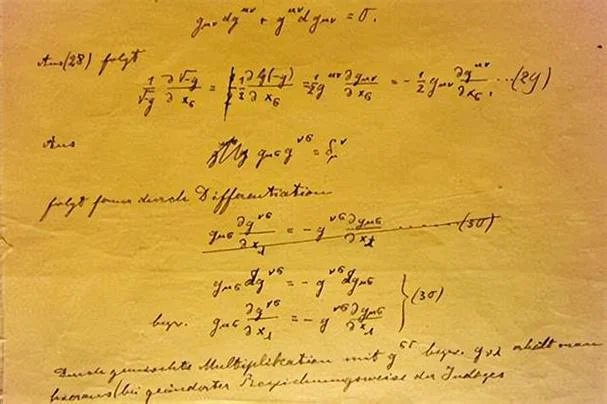 g_{μν} dg^{μν} + g^{μν} dg_{μν} = 0.
Aus (28) folgt
1/√-g ∂√-g/∂x_σ = 1/2 ∂lg(-g)/∂x_σ = 1/2 g^{μν} ∂g_{μν}/∂x_σ = - 1/2 g_{μν} ∂g^{μν}/∂x_σ. ...(29)
Aus
g_{μσ} g^{νσ} = δ_μ^ν
folgt ferner durch Differentiation
g_{μσ} ∂g^{νσ}/∂x_λ = - g^{νσ} ∂g_{μσ}/∂x_λ ... (30)
g_{μσ} dg^{νσ} = - g^{νσ} dg_{μσ}
bezw. g_{μσ} ∂g^{νσ}/∂x_λ = - g^{νσ} ∂g_{μσ}/∂x_λ } (30)
Durch gemischte Multiplikation mit g^{στ} bezw. g_{νλ} erhält man
hieraus (bei geänderter Bezeichnungsweise der Indizes